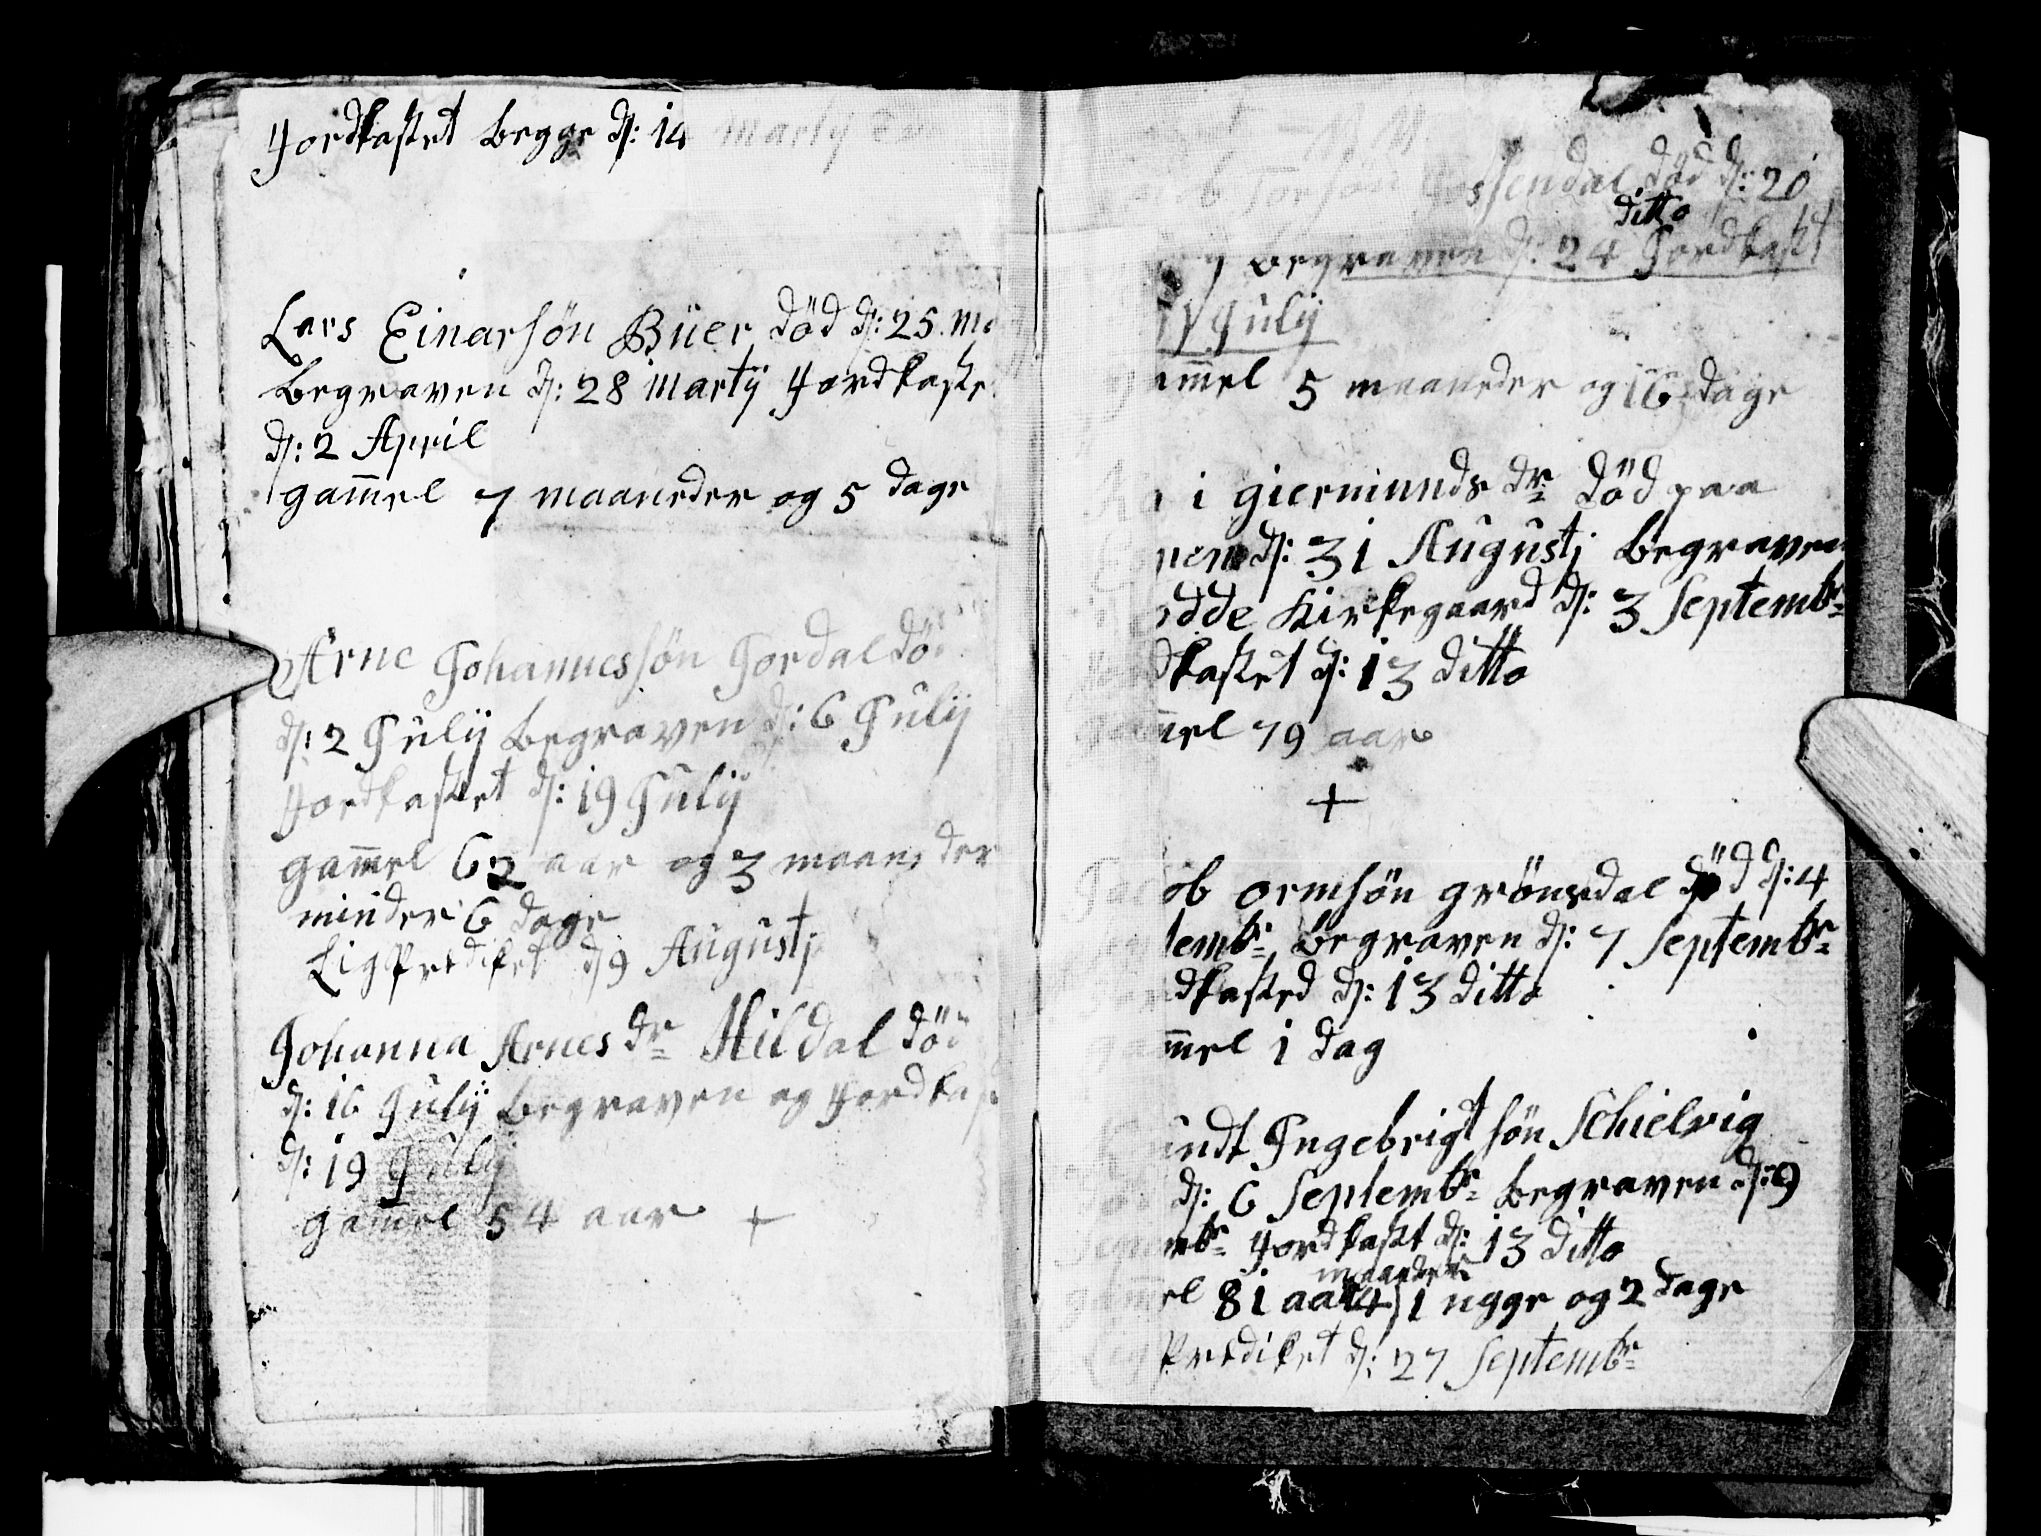 Jordkastet begge d: 14 Martij
Lars Einarsön Büer död d: 25
begraven d: 28 Martij Jordkaste
d: 2 April
gam̅el 7 maaneder og 5 dage
Arne Johannessön Jordal dö
d: 2 Julij begraven d: 6 Julij
Jordkastet d: 19 Julij
gam̅el 62 aar og 3 maaneder
minder 6 dage
Ligprediket d 9 Augustj
Johanna Arnes dr Hildal död
d: 16 Julij begraven og Jordkast
d: 19 Julij
gam̅el 54 aar +
Torsön död d: 20
ditto
begraven d: 24 Jordkast
Julij
gam̅el 5 maaneder og 16 dage
i giermunds dr död paa
d: 31 Augustj begraven
odde Kirkegaard d: 3 Septembr
Jordkastet d: 13 ditto
gam̅el 79 aar
+
Jacob ormsön grönsdal död d: 4
tembr begraven d: 7 Septembr
Jordkasted d: 13 ditto
gam̅el 1 dag
undt Ingebrigtsön Schielvig
d: 6 Septembr begraven d: 9
Septembr Jordkast d: 13 ditto
maaneder
gam̅el 81 aar 4 1 ugge og 2 dage
Ligprediket d: 27 Septembr